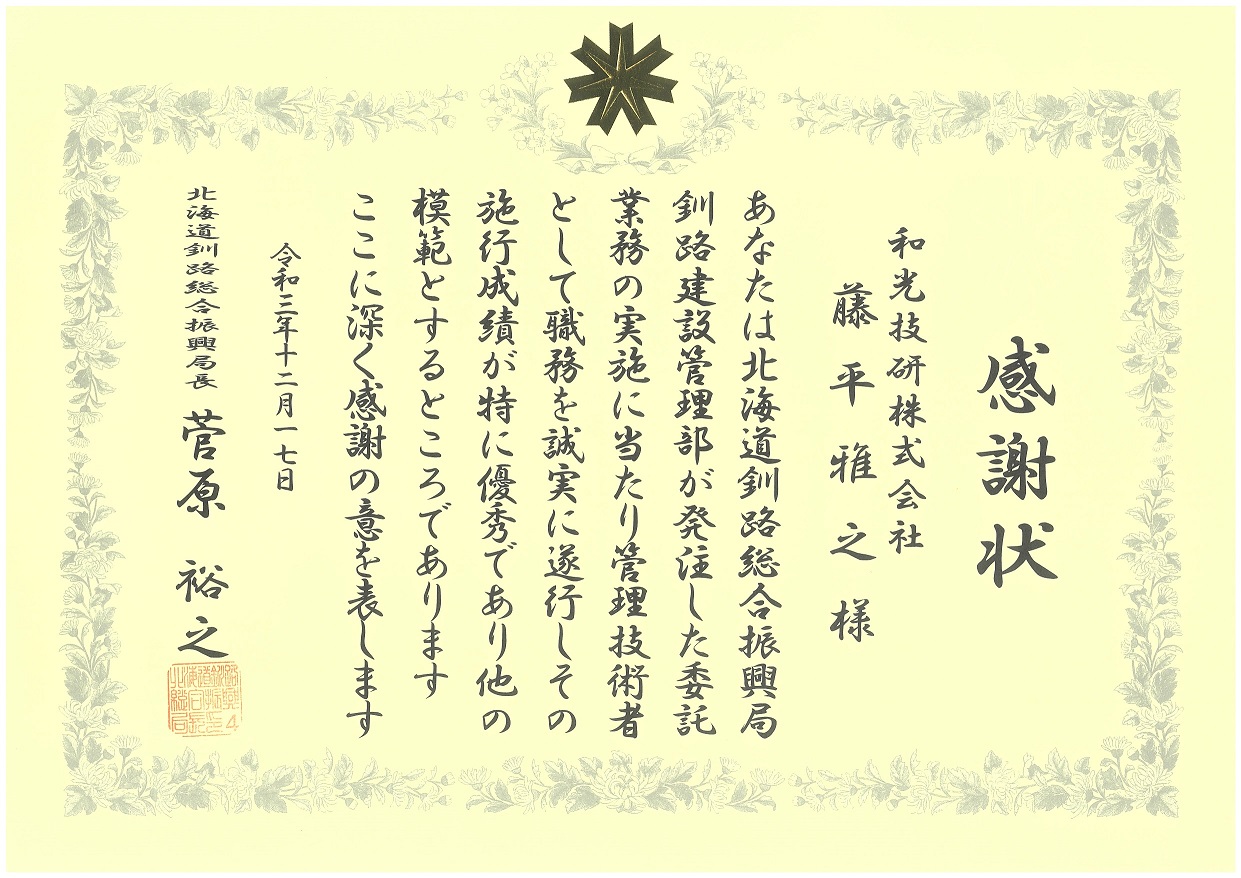 感謝状
和光技研株式会社
藤平雅之様
あなたは北海道釧路総合振興局
釧路建設管理部が発注した委託
業務の実施に当たり管理技術者
として職務を誠実に遂行しその
施行成績が特に優秀であり他の
模範とするところであります
ここに深く感謝の意を表します
令和三年十二月一七日
北海道釧路総合振興局長 菅原 裕之